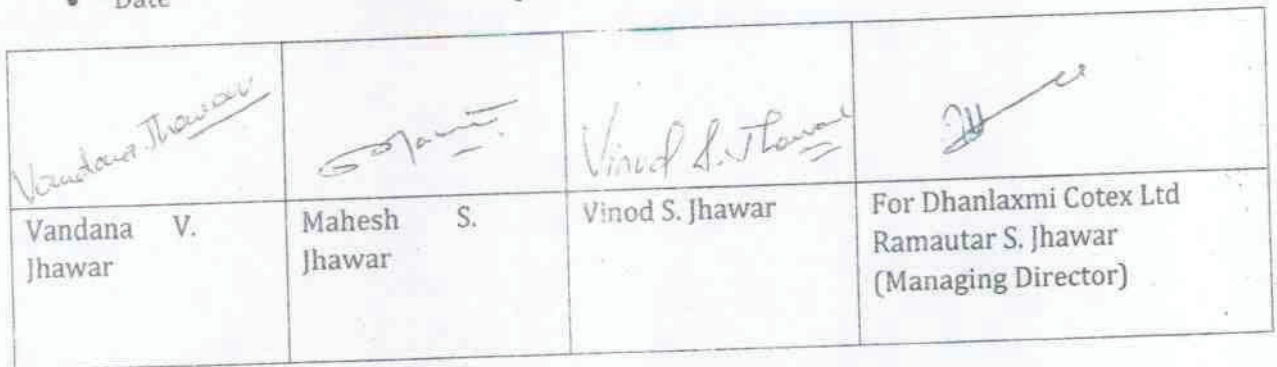 Date
Vandana Jhawar
Vinod S. Jhawar
Vandana V.
Jhawar
Mahesh S.
Jhawar
Vinod S. Jhawar
For Dhanlaxmi Cotex Ltd
Ramautar S. Jhawar
(Managing Director)